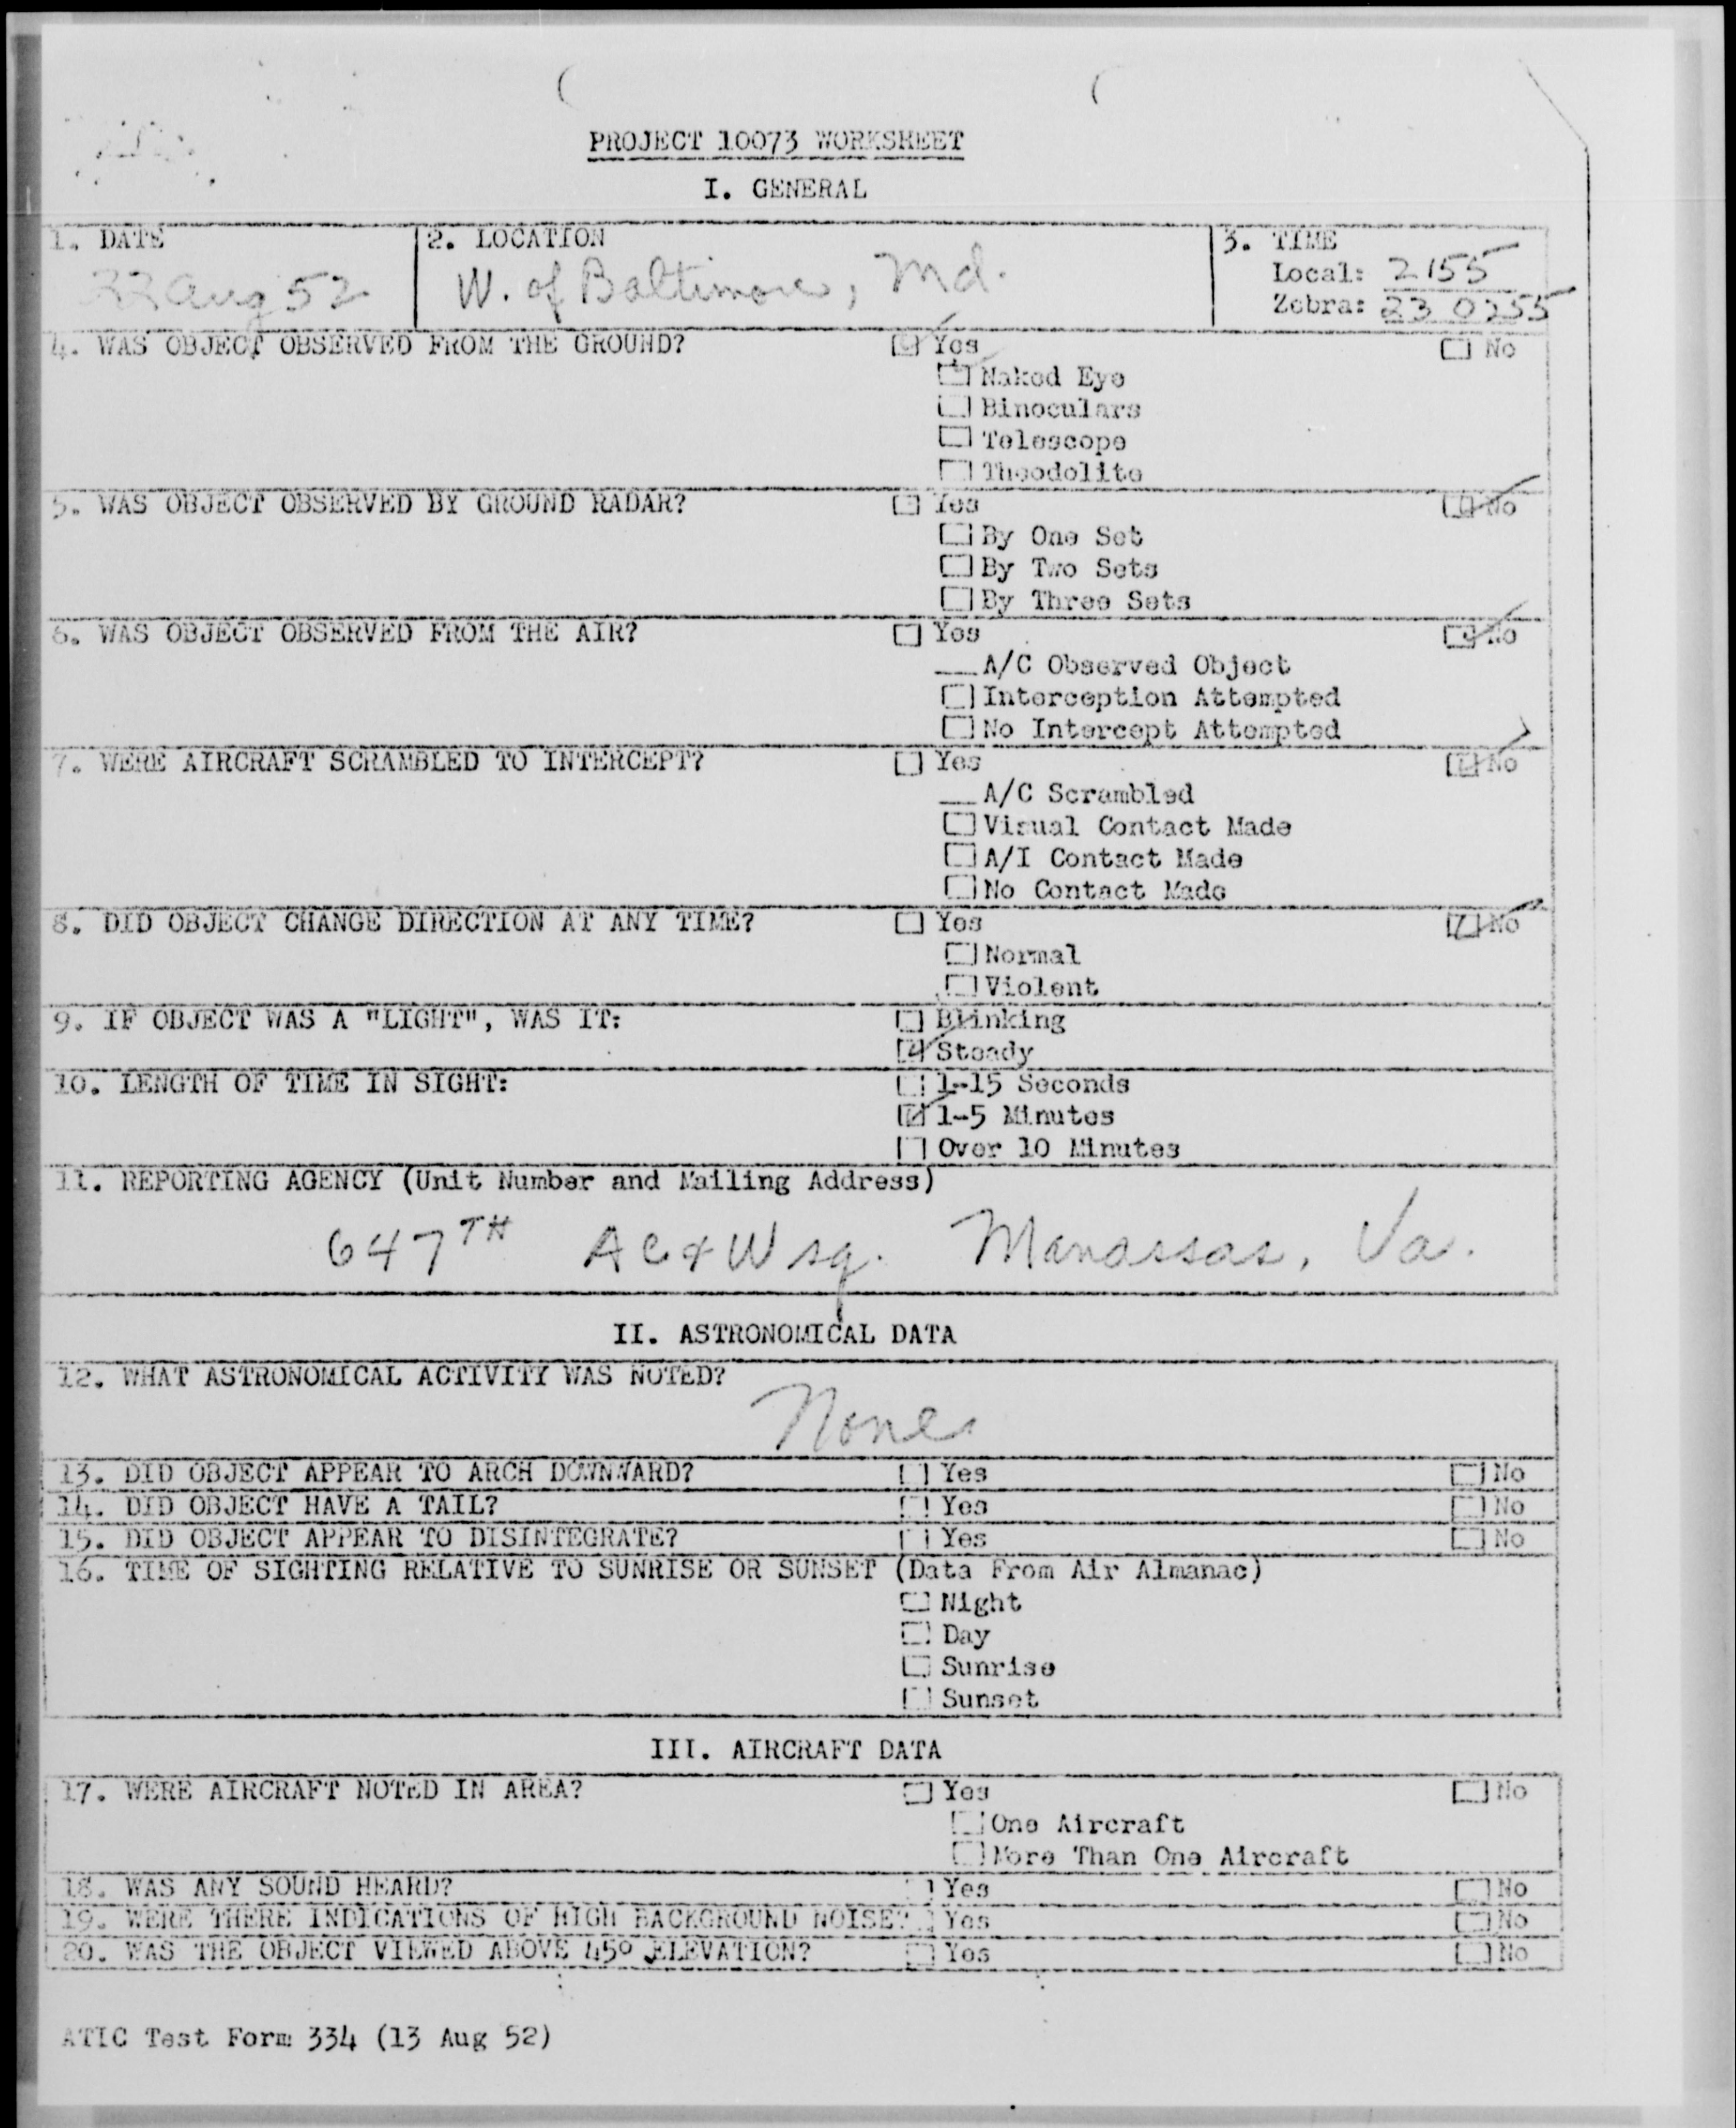 PROJECT 10073 WORKSHEET
I. GENERAL
1. DATE
22 Aug 52
2. LOCATION
W. of Baltimore, Md.
3. TIME
Local: 2155
Zebra: 23 0255
4. WAS OBJECT OBSERVED FROM THE GROUND? Yes No
Naked Eye
Binoculars
Telescope
Theodolite
5. WAS OBJECT OBSERVED BY GROUND RADAR? Yes No
By One Set
By Two Sets
By Three Sets
6. WAS OBJECT OBSERVED FROM THE AIR? Yes No
A/C Observed Object
Interception Attempted
No Intercept Attempted
7. WERE AIRCRAFT SCRAMBLED TO INTERCEPT? Yes No
A/C Scrambled
Visual Contact Made
A/I Contact Made
No Contact Made
8. DID OBJECT CHANGE DIRECTION AT ANY TIME? Yes No
Normal
Violent
9. IF OBJECT WAS A "LIGHT", WAS IT: Blinking
Steady
10. LENGTH OF TIME IN SIGHT: 1-15 Seconds
1-5 Minutes
Over 10 Minutes
11. REPORTING AGENCY (Unit Number and Mailing Address)
647TH AC&W sq. Manassas, Va.
II. ASTRONOMICAL DATA
12. WHAT ASTRONOMICAL ACTIVITY WAS NOTED?
None
13. DID OBJECT APPEAR TO ARCH DOWNWARD? Yes No
14. DID OBJECT HAVE A TAIL? Yes No
15. DID OBJECT APPEAR TO DISINTEGRATE? Yes No
16. TIME OF SIGHTING RELATIVE TO SUNRISE OR SUNSET (Data From Air Almanac)
Night
Day
Sunrise
Sunset
III. AIRCRAFT DATA
17. WERE AIRCRAFT NOTED IN AREA? Yes No
One Aircraft
More Than One Aircraft
18. WAS ANY SOUND HEARD? Yes No
19. WERE THERE INDICATIONS OF HIGH BACKGROUND NOISE? Yes No
20. WAS THE OBJECT VIEWED ABOVE 45° ELEVATION? Yes No
ATIC Test Form 334 (13 Aug 52)